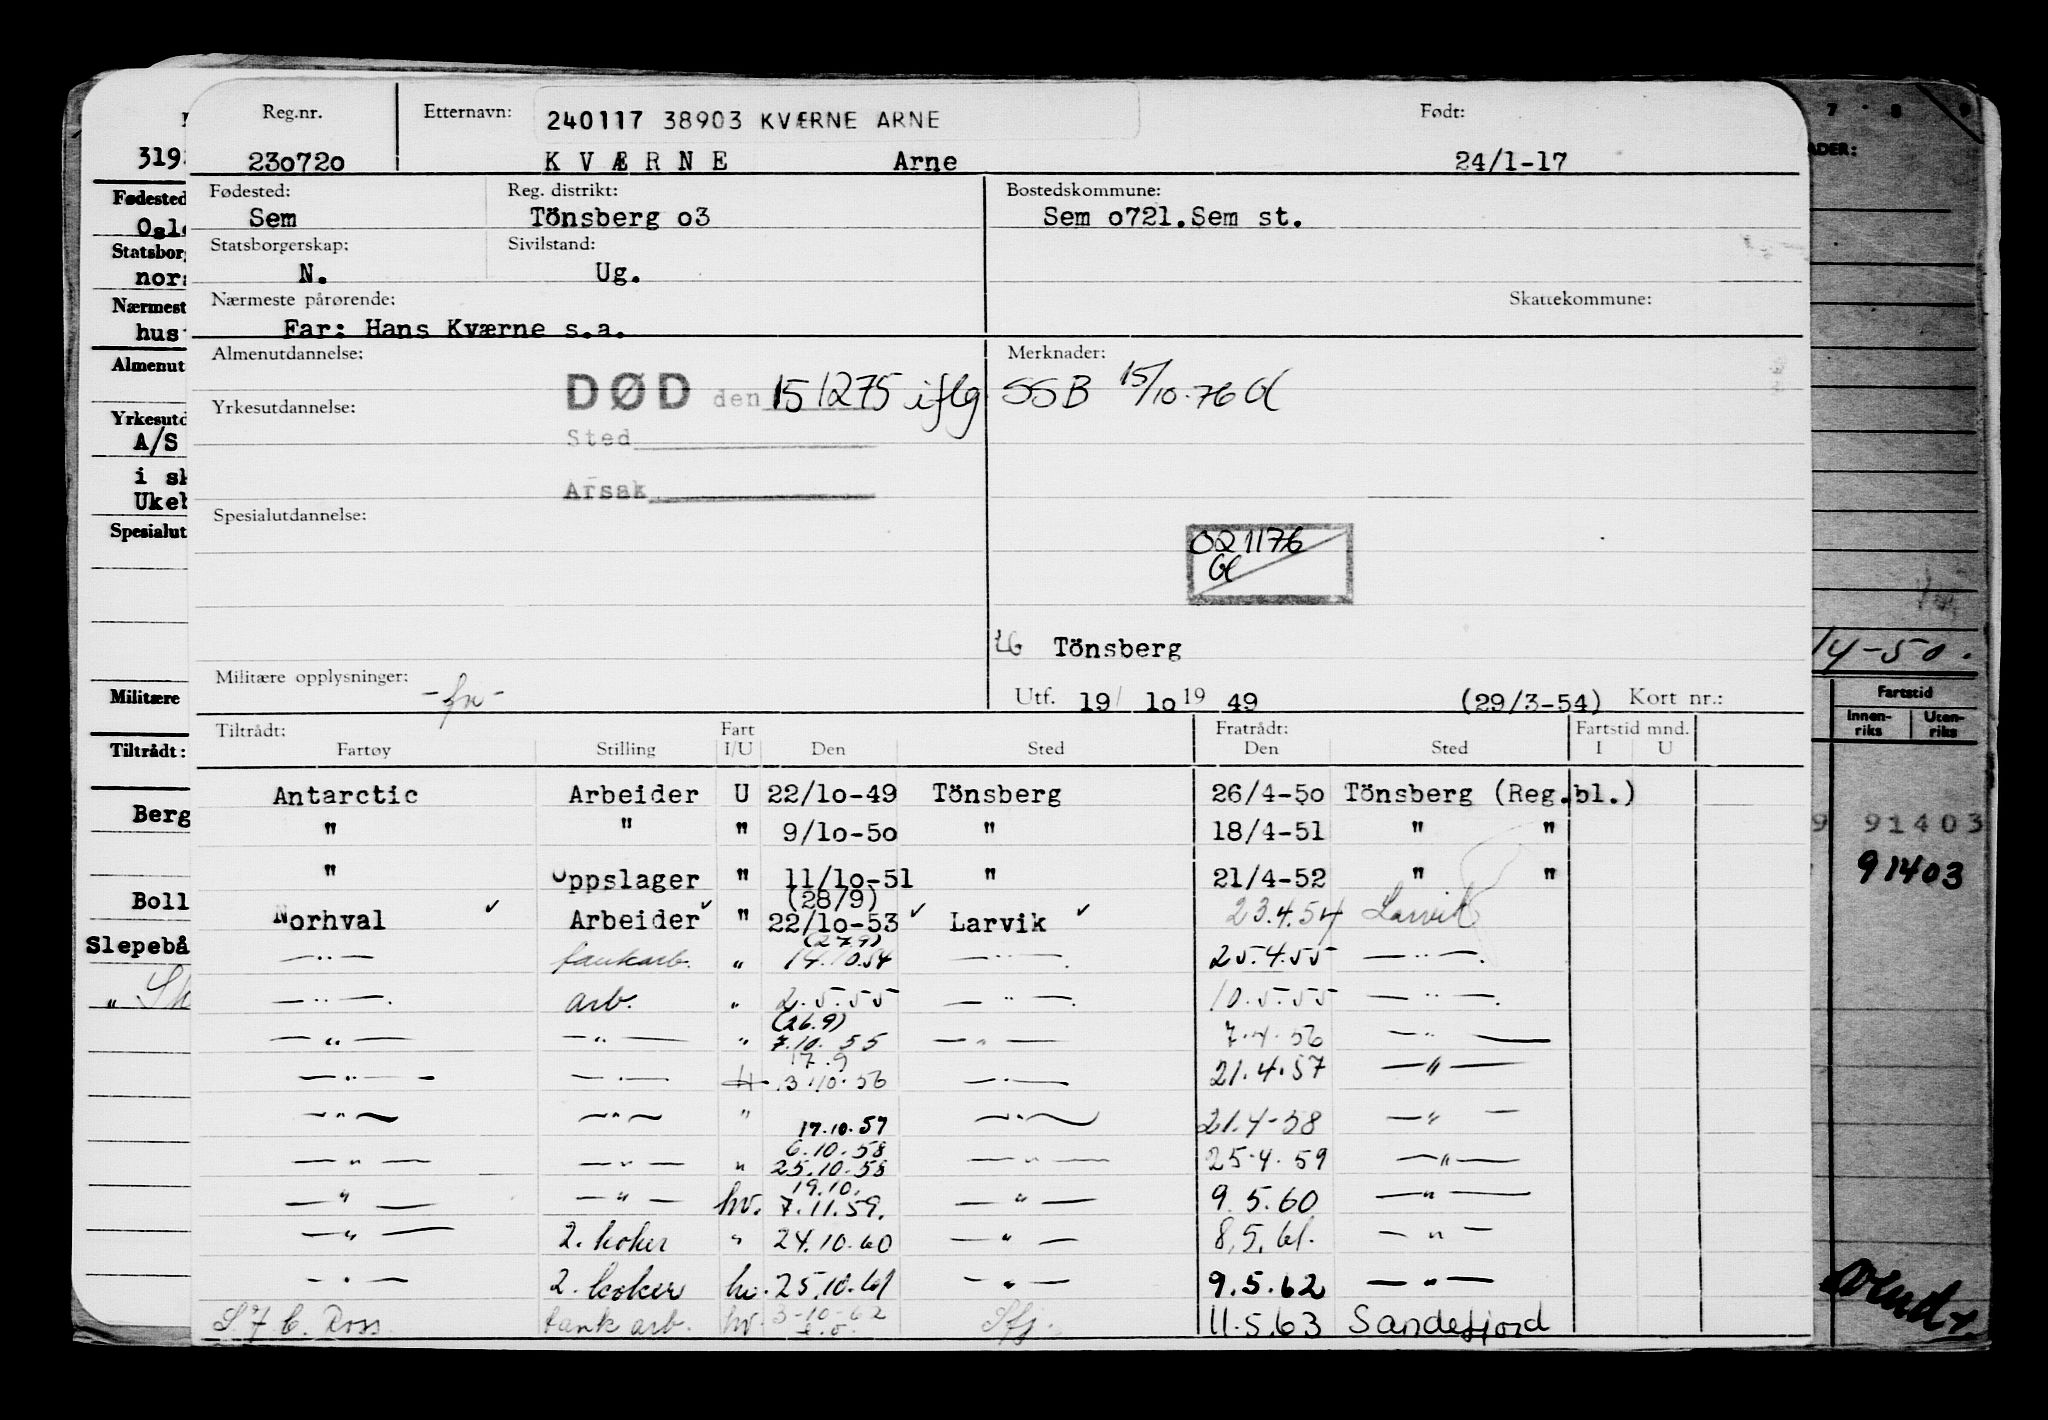 Reg.nr. Etternavn: 240117 38903 KVÆRNE ARNE Født:
23o72o K V Æ R N E Arne 24/1-17
Fødested: Reg. distrikt: Bostedskommune:
Sem Tönsberg o3 Sem o721.Sem st.
Statsborgerskap: Sivilstand:
N. Ug.
Nærmeste pårørende: Skattekommune:
Far: Hans Kværne s.a.
Almenutdannelse: Merknader:
DØD den 151275 iflg SSB 15/10-76 Gl
Yrkesutdannelse:
Sted
Arsak
Spesialutdannelse:
021176
Gl
Tönsberg
Militære opplysninger: -fr-
Utf. 19/ 1o 19 49 (29/3-54) Kort nr.:
Tiltrådt: Fart Fratrådt: Fartstid mnd.
Fartøy Stilling I/U Den Sted Den Sted I U
Antarctic Arbeider U 22/1o-49 Tönsberg 26/4-5o Tönsberg (Reg.bl.)
" " " 9/1o-5o " 18/4-51 " "
" Oppslager " 11/1o-51 " 21/4-52 " "
(28/9)
Norhval ✓ Arbeider ✓ " 22/1o-53 ✓ Larvik ✓ 23.4.54 Larvik
(27.9)
—"— tankarb. " 14.10.54 —"—. 25.4.55 —"—.
—"—. arb. " 2.5.55 —"—. 10.5.55 —"—.
(26.9)
—"— —"— " 7.10.55 —"— 7.4.56 —"—
17.9
—"— —"— 3.10.56 —"— 21.4.57 —"—
—"— —"— " 17.10.57 —"— 21.4-58 —"—
6.10.58
—"— —"— " 25.10.58 —"— 25.4.59 —"—
19.10.
—"— —"— hv. 7.11.59. —"— 9.5.60 —"—
—"— 2. koker " 24.10.60 —"— 8.5.61. —"—
—"— 2. koker hv. 25.10.61 —"— 9.5.62 —"—
S. J. C. Ross tank arb. hv. 3-10-62 Sfj. 11.5.63 Sandefjord
319
Fødested
Oslo
Statsborg
nors
Nærmest
hus
Almenut
Yrkesutd
A/S
i sk
Ukeb
Spesialut
Militære
Tiltrådt:
Berg
Boll
Slepebå
7 8 9
ADER:
14-50.
Fartstid
Innen-riks Uten-riks
9 91403
91403
vend